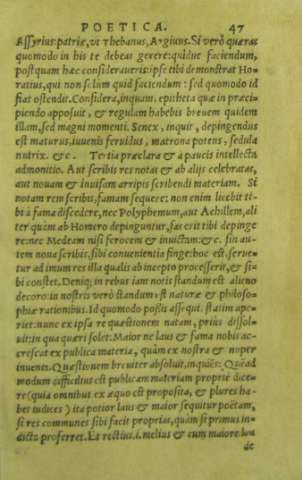 POETICA. 47
Assyrius: patriæ, vt Thebanus, Argiuus. Si verò quæras
quomodo in his te debeas gerere: quidue faciendum,
postquam hæc consideraueris: ipse tibi demonstrat Ho-
ratius, qui non solum quid faciendum: sed quomodo id
fiat ostendit. Considera, inquam, epitheta quæ in præci-
piendo apposuit, & regulam habebis breuem quidem
illam, sed magni momenti. Senex, inquit, depingendus
est maturus, iuuenis feruidus, matrona potens, sedula
nutrix. &c. Tertia præclara & a paucis intellecta
admonitio. Aut scribis res notas & ab alijs celebratas,
aut nouam & inuisam arripis scribendi materiam. Si
notam rem scribis, famam sequere: non enim licebit ti-
bi à fama discedere, nec Polyphemum, aut Achillem, ali
ter quàm ab Homero depinguntur, fas erit tibi depinge
re: nec Medeam nisi ferocem & inuictum: &c. sin au-
tem noua scribis, sibi conuenientia finge: hoc est, serue-
tur ad imum res illa qualis ab incepto processerit, & si-
bi constet. Deniq; in rebus iam notis standum est alieno
decoro: in nostris verò standum est naturæ & philoso-
phiæ rationibus. Id quomodo possis assequi. statim ape-
riet: nunc ex ipsa re quæstionem natam, prius dissol-
uit: in qua quæri solet: Maior ne laus & fama nobis ac-
crescat ex publica materia, quàm ex nostra & nuper
inuenta. Quæstionem breuiter absoluit, inquiēs: Quēad
modum difficilius est publicam materiam propriè dice-
re (quia omnibus ex æquo est proposita, & plures ha-
bet iudices) ita potior laus & maior sequitur poëtam,
si res communes sibi facit proprias, quàm si primus in-
dicta proferret. Et rectius. i. melius & cum maiore lau
de